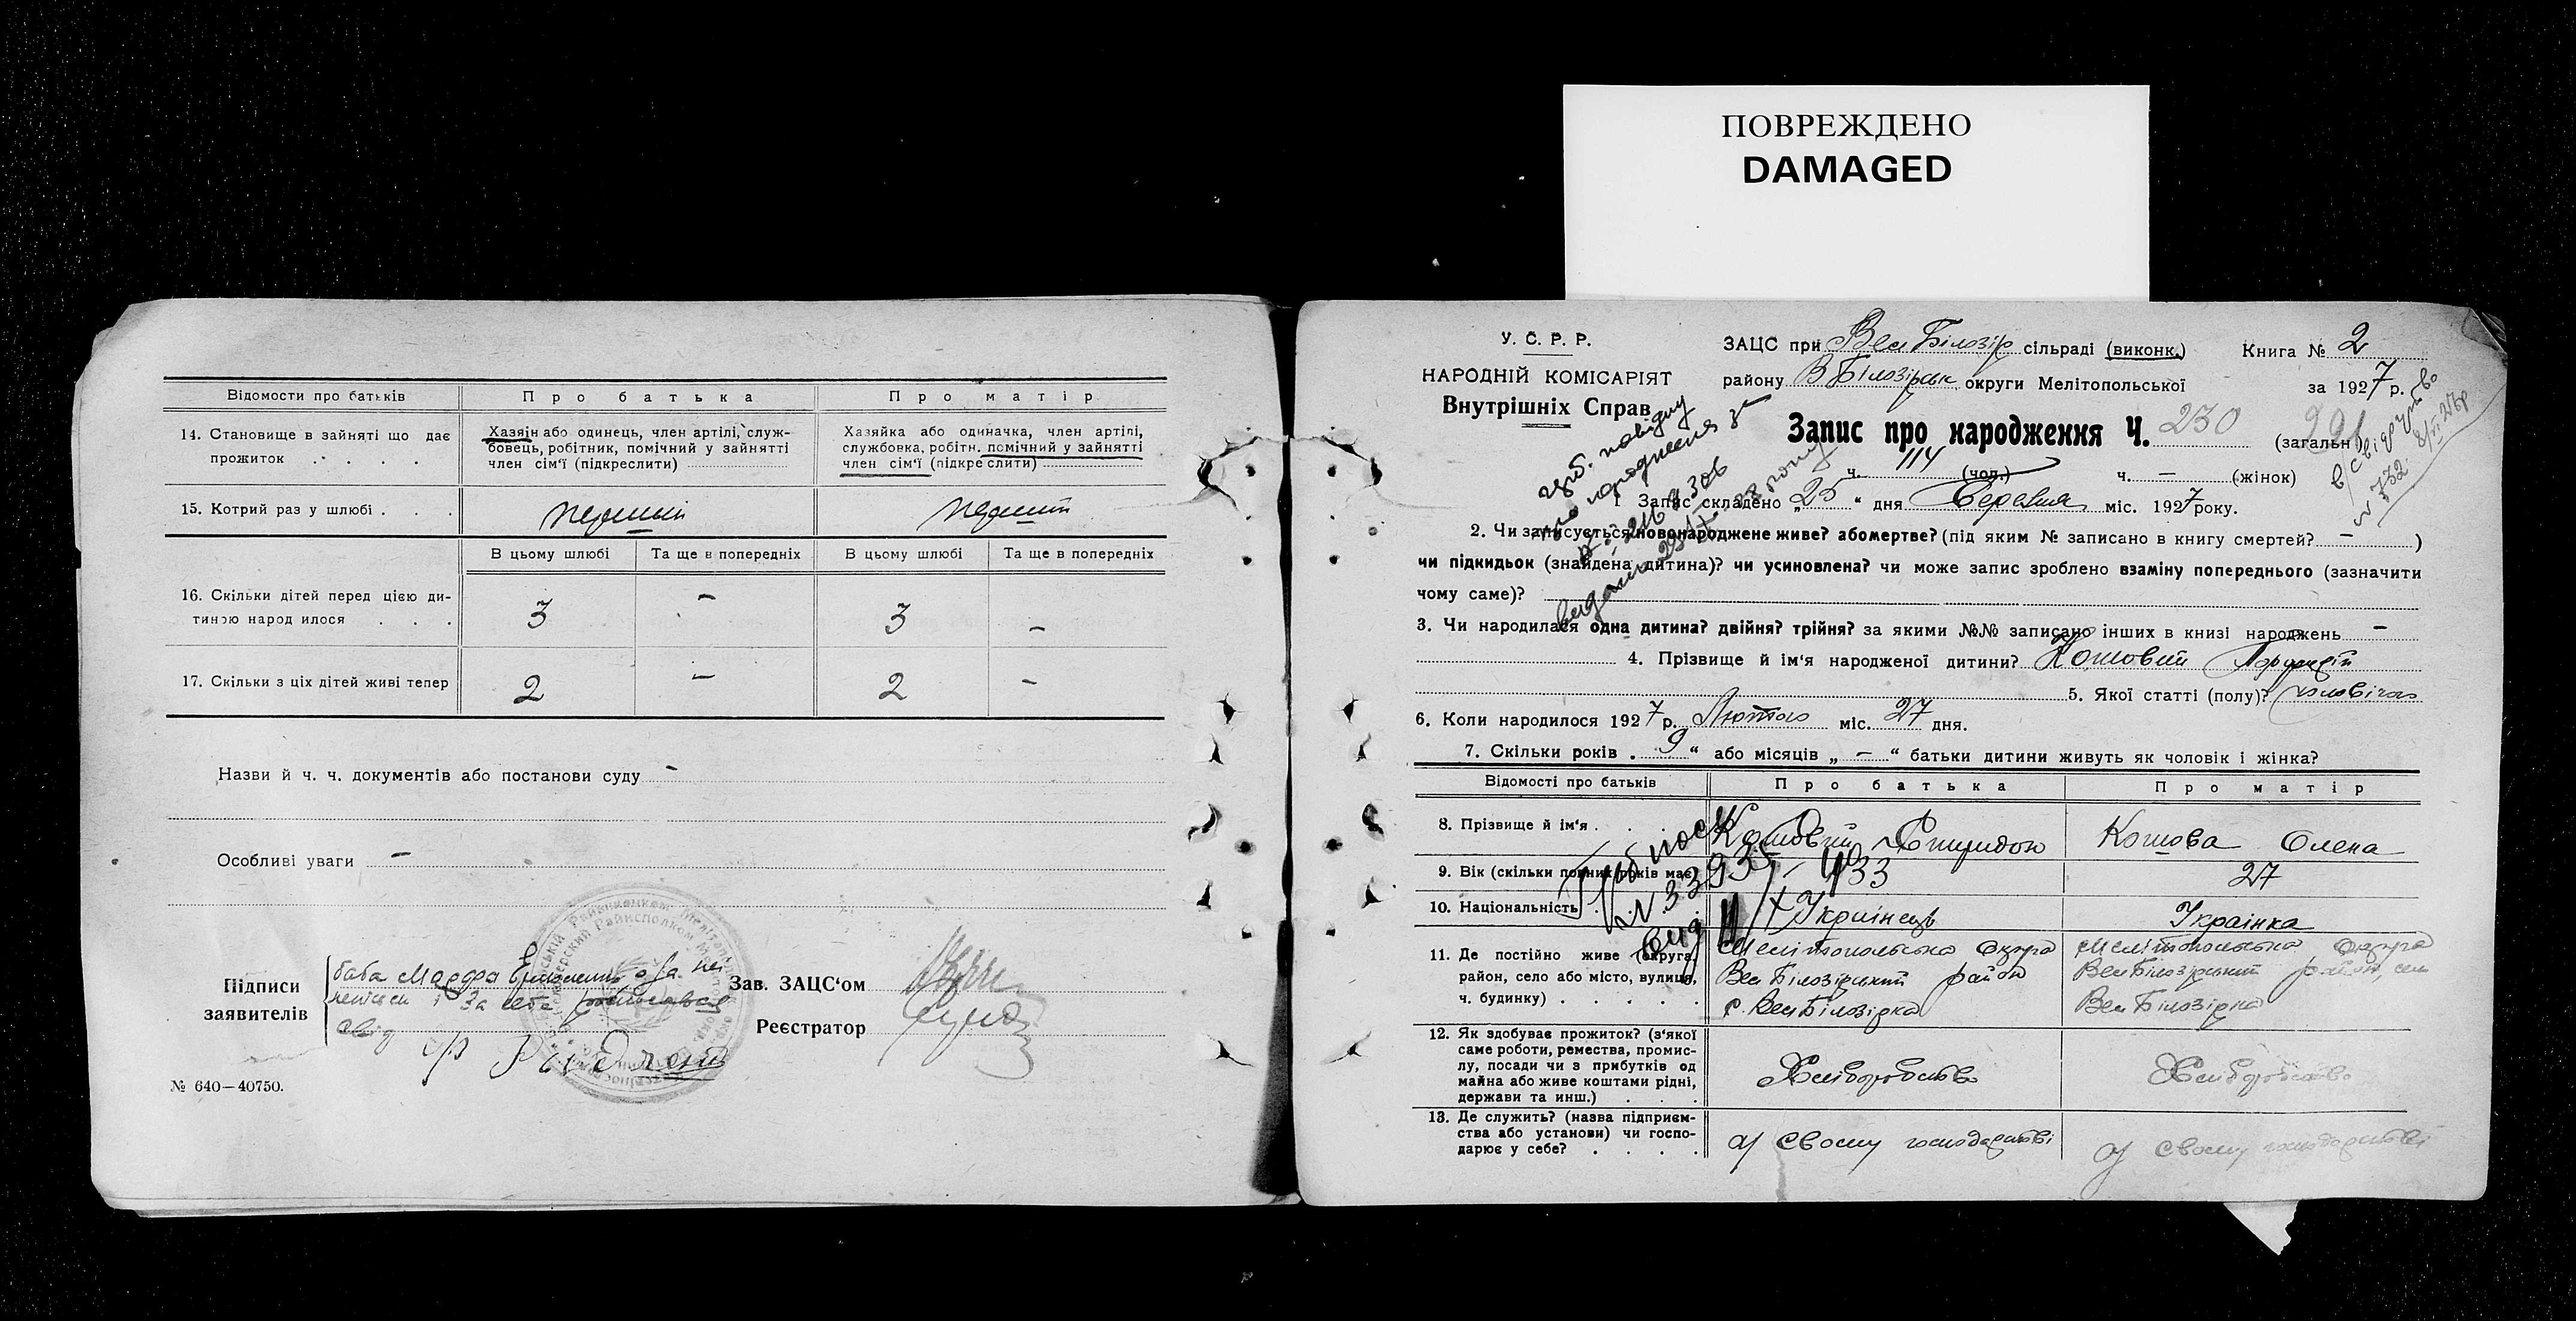 ПОВРЕЖДЕНО
DAMAGED
Відомости про батьків
Про батька
Про матір
14. Становище в зайняті що дає прожиток . . . .
Хазяїн або одинець, член артілі, служ-
бовець, робітник, помічний у зайнятті
член сім'ї (підкреслити)
Хазяйка або одиначка, член артілі,
службовка, робітн. помічний у зайнятті
член сім'ї (підкреслити)
15. Котрий раз у шлюбі . . .
перший
перший
В цьому шлюбі
Та ще в попередніх
В цьому шлюбі
Та ще в попередніх
16. Скільки дітей перед цією ди-
тиною народилося . . .
3 – 3 –
17. Скільки з ціх дітей живі тепер
2 – 2 –
Назви й ч. ч. документів або постанови суду –
Особливі уваги –
Підписи
заявителів
баба Марфа
за себе
Зав. ЗАЦС'ом
Реєстратор
№ 640—40750.
У. С. Р. Р.
НАРОДНІЙ КОМІСАРІЯТ
Внутрішніх Справ
ЗАЦС при Вел Білозір сільраді (виконк.)
Книга № 2
району В Білозірськ округи Мелітопольської
за 1927 р.
Запис про народження Ч. 230 (загальн)
ч. 114 (чол.) ч. — (жінок)
1 Запис складено „25" дня Березня міс. 1927 року.
2. Чи записується новонароджене живе? або мертве? (під яким № записано в книгу смертей? – )
чи підкидьок (знайдена дитина)? чи усиновлена? чи може запис зроблено взаміну попереднього (зазначити
чому саме)?
3. Чи народилася одна дитина? двійня? трійня? за якими №№ записано інших в книзі народжень –
4. Прізвище й ім'я народженої дитини? Кошовий
5. Якої статті (полу)? чоловічої
6. Коли народилося 1927 р. Лютого міс. 27 дня.
7. Скільки років „9" або місяців „—" батьки дитини живуть як чоловік і жінка?
Відомості про батьків
Про батька
Про матір
8. Прізвище й ім'я . Кошовий Спиридон Кошова Олена
9. Вік (скільки повних років має) 33 27
10. Національність Українець Українка
11. Де постійно живе (округа,
район, село або місто, вулиця,
ч. будинку) . . . . .
Мелітопольська округа
Вел Білозірський район
с. Вел Білозірка
Мелітопольська округа
Вел Білозірський район, село
Вел Білозірка
12. Як здобуває прожиток? (з'якої
саме роботи, ремества, промис-
лу, посади чи з прибутків од
майна або живе коштами рідні,
держави та инш.) . . .
Хліборобство
Хліборобство
13. Де служить? (назва підприєм-
ства або установи) чи госпо-
дарює у себе? . . . .
у своєму господарстві
у своєму господарстві